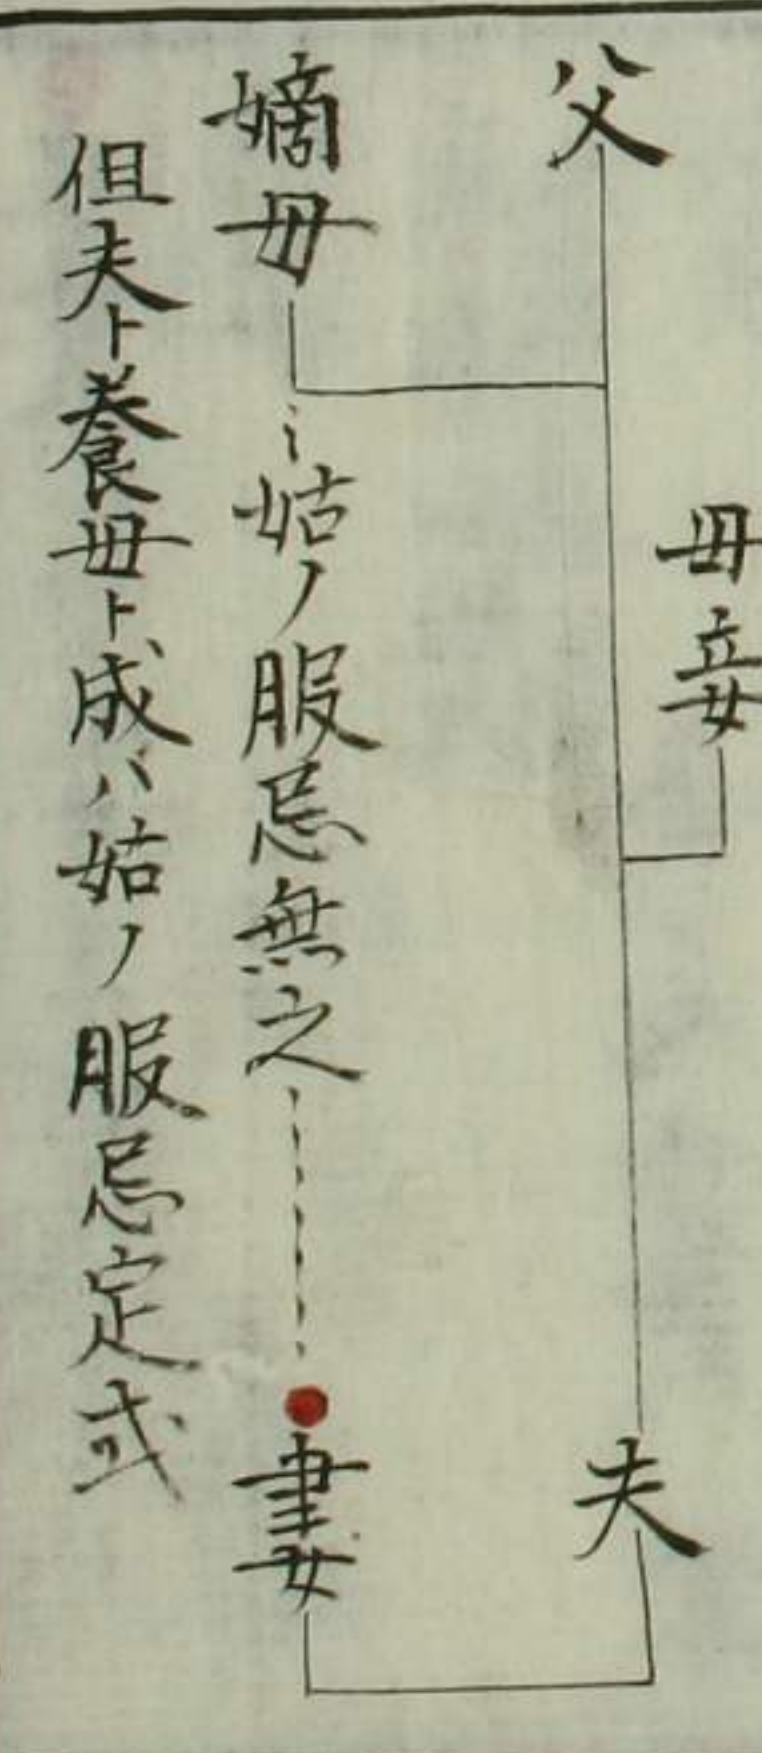 母妾
父
夫
嫡母
姑ノ服忌無之
妻
但夫ト養母ト成バ姑ノ服忌定式